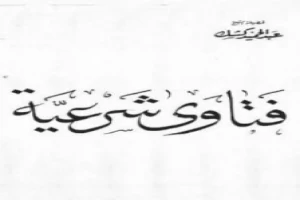 فضيلة الشيخ
عبد الحميد كشك
فَتَاوى شَرعيَّة